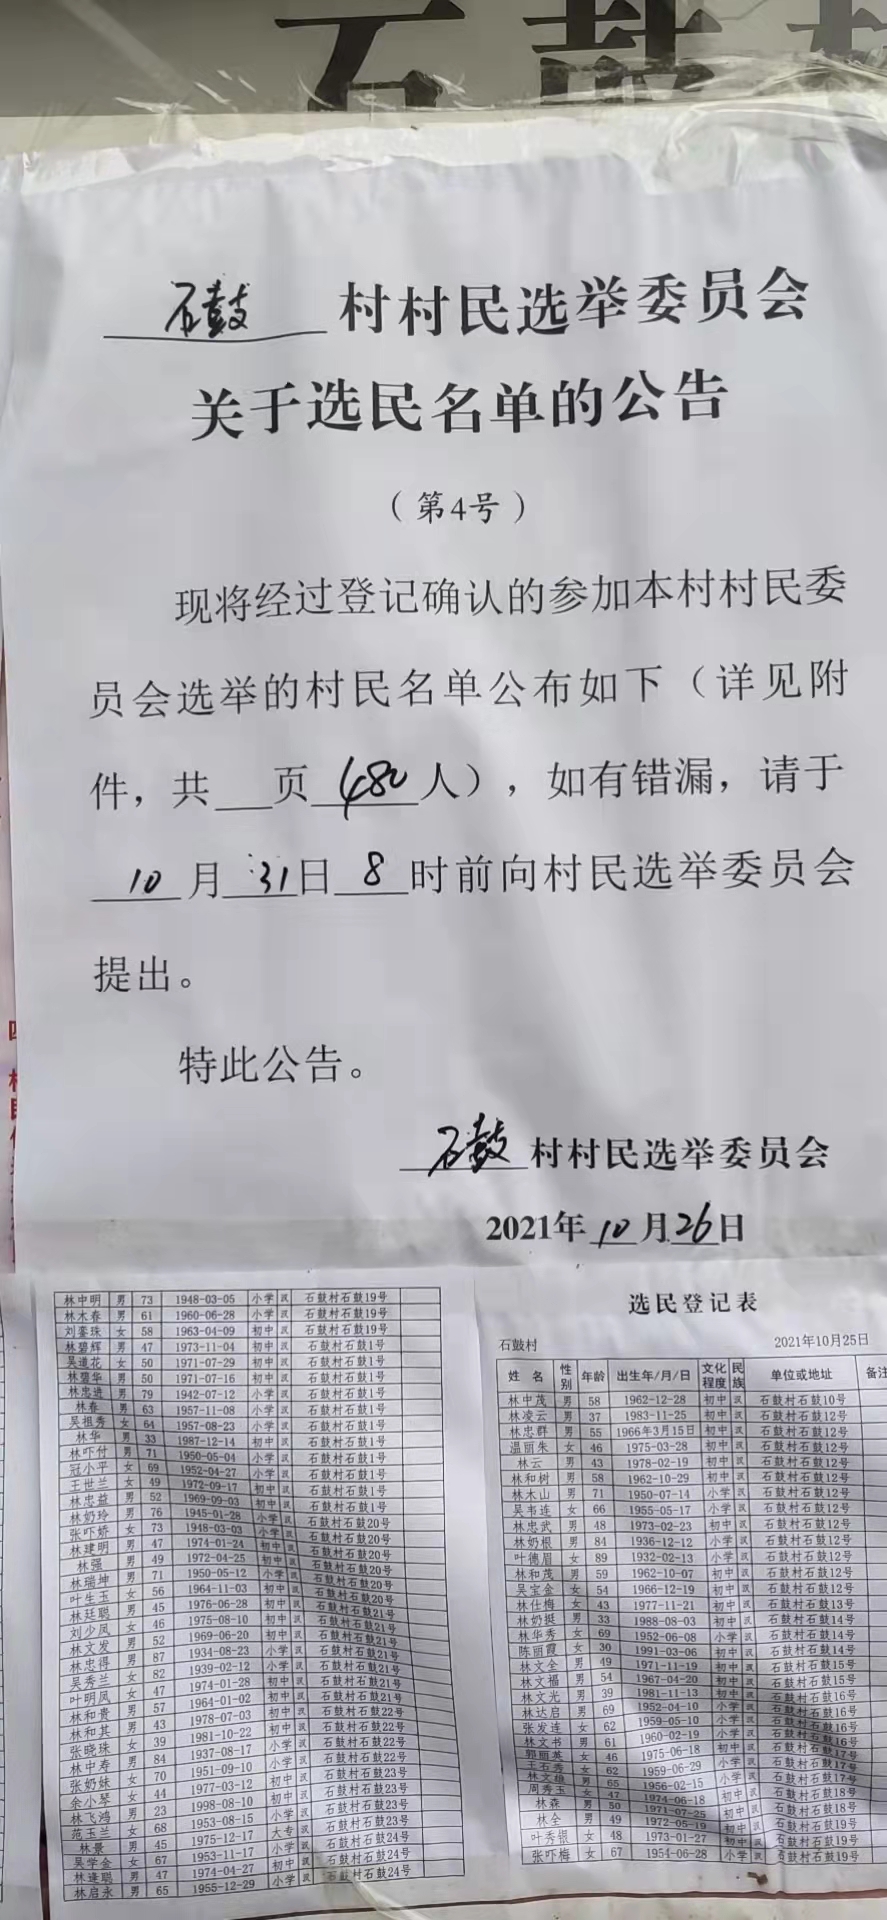 石鼓村
石鼓 村村民选举委员会
关于选民名单的公告
（第4号）
现将经过登记确认的参加本村村民委
员会选举的村民名单公布如下（详见附
件，共___页 480 人），如有错漏，请于
10 月 31 日 8 时前向村民选举委员会
提出。
特此公告。
石鼓 村村民选举委员会
2021年 10 月 26 日
林中明 男 73 1948-03-05 小学 汉 石鼓村石鼓19号
林木春 男 61 1960-06-28 小学 汉 石鼓村石鼓19号
刘銮珠 女 58 1963-04-09 初中 汉 石鼓村石鼓19号
林碧辉 男 47 1973-11-04 初中 汉 石鼓村石鼓1号
吴道花 女 50 1971-07-29 初中 汉 石鼓村石鼓1号
林碧华 男 50 1971-07-16 初中 汉 石鼓村石鼓1号
林忠进 男 79 1942-07-12 小学 汉 石鼓村石鼓1号
林春 男 63 1957-11-08 小学 汉 石鼓村石鼓1号
吴祖秀 女 64 1957-08-23 小学 汉 石鼓村石鼓1号
林华 男 33 1987-12-14 初中 汉 石鼓村石鼓1号
林吓付 男 71 1950-05-04 小学 汉 石鼓村石鼓1号
冠小平 女 69 1952-04-27 小学 汉 石鼓村石鼓1号
王世兰 女 49 1972-09-17 初中 汉 石鼓村石鼓1号
林忠益 男 52 1969-09-03 初中 汉 石鼓村石鼓1号
林奶玲 男 76 1945-01-28 小学 汉 石鼓村石鼓20号
张吓娇 女 73 1948-03-03 小学 汉 石鼓村石鼓20号
林建明 男 47 1974-01-24 初中 汉 石鼓村石鼓20号
林强 男 49 1972-04-25 初中 汉 石鼓村石鼓20号
林瑞坤 男 71 1950-05-12 小学 汉 石鼓村石鼓20号
叶生玉 女 56 1964-11-03 初中 汉 石鼓村石鼓20号
林廷聪 男 45 1976-06-28 初中 汉 石鼓村石鼓21号
刘少凤 女 46 1975-08-10 初中 汉 石鼓村石鼓21号
林文发 男 52 1969-06-20 初中 汉 石鼓村石鼓21号
林忠得 男 87 1934-08-23 小学 汉 石鼓村石鼓21号
吴秀兰 女 82 1939-02-12 小学 汉 石鼓村石鼓21号
叶明凤 女 47 1974-01-28 初中 汉 石鼓村石鼓21号
林和贵 男 57 1964-01-02 初中 汉 石鼓村石鼓22号
林和其 男 43 1978-07-03 初中 汉 石鼓村石鼓22号
张晓珠 女 39 1981-10-22 初中 汉 石鼓村石鼓22号
林中寿 男 84 1937-08-17 小学 汉 石鼓村石鼓22号
张奶妹 女 70 1951-09-10 小学 汉 石鼓村石鼓23号
余小琴 女 44 1977-03-12 初中 汉 石鼓村石鼓23号
林飞鸿 男 23 1998-08-10 初中 汉 石鼓村石鼓23号
范玉兰 女 68 1953-08-15 小学 汉 石鼓村石鼓23号
林景 男 45 1975-12-17 大专 汉 石鼓村石鼓24号
吴学金 女 67 1953-11-17 小学 汉 石鼓村石鼓24号
林逢聪 男 47 1974-04-27 初中 汉 石鼓村石鼓24号
林启永 男 65 1955-12-29 小学 汉 石鼓村石鼓24号
选民登记表
石鼓村 2021年10月25日
姓 名 性别 年龄 出生年/月/日 文化程度 民族 单位或地址 备注
林中茂 男 58 1962-12-28 初中 汉 石鼓村石鼓10号
林凌云 男 37 1983-11-25 初中 汉 石鼓村石鼓12号
林忠群 男 55 1966年3月15日 初中 汉 石鼓村石鼓12号
温丽朱 女 46 1975-03-28 初中 汉 石鼓村石鼓12号
林云 男 43 1978-02-19 初中 汉 石鼓村石鼓12号
林和树 男 58 1962-10-29 初中 汉 石鼓村石鼓12号
林木山 男 71 1950-07-14 小学 汉 石鼓村石鼓12号
吴韦连 女 66 1955-05-17 小学 汉 石鼓村石鼓12号
林忠武 男 48 1973-02-23 初中 汉 石鼓村石鼓12号
林奶根 男 84 1936-12-12 小学 汉 石鼓村石鼓12号
叶德眉 女 89 1932-02-13 小学 汉 石鼓村石鼓12号
林和茂 男 59 1962-10-07 初中 汉 石鼓村石鼓12号
吴宝金 女 54 1966-12-19 初中 汉 石鼓村石鼓12号
林仕梅 女 43 1977-11-21 初中 汉 石鼓村石鼓13号
林奶挺 男 33 1988-08-03 初中 汉 石鼓村石鼓14号
林华秀 女 69 1952-06-08 小学 汉 石鼓村石鼓14号
陈丽霞 女 30 1991-03-06 初中 汉 石鼓村石鼓14号
林文全 男 49 1971-11-19 初中 汉 石鼓村石鼓15号
林文福 男 54 1967-04-20 初中 汉 石鼓村石鼓15号
林文光 男 39 1981-11-13 初中 汉 石鼓村石鼓16号
林达启 男 69 1952-04-10 小学 汉 石鼓村石鼓16号
张发连 女 62 1959-05-10 小学 汉 石鼓村石鼓16号
林文书 男 61 1960-02-19 小学 汉 石鼓村石鼓17号
郭丽英 女 46 1975-06-18 初中 汉 石鼓村石鼓17号
王石秀 女 62 1959-06-29 小学 汉 石鼓村石鼓17号
男 65 1956-02-15 小学 汉 石鼓村石鼓18号
周秀玉 女 47 1974-06-18 初中 汉 石鼓村石鼓18号
林森 男 50 1971-07-25 初中 汉 石鼓村石鼓18号
林全 男 49 1972-05-19 初中 汉 石鼓村石鼓19号
叶秀银 女 48 1973-01-27 初中 汉 石鼓村石鼓19号
张吓梅 女 67 1954-06-28 小学 汉 石鼓村石鼓19号